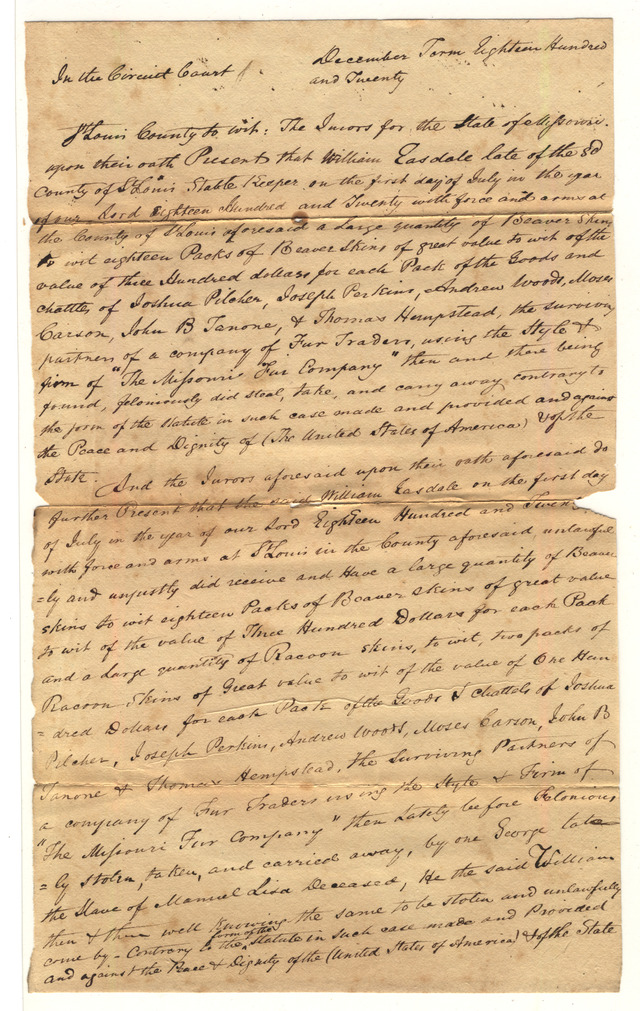 In the Circuit Court
December Term Eighteen Hundred
and Twenty
St Louis County to wit: The Jurors for the State of Missouri
upon their oath Present that William Easdale late of the sd
County of St Louis Stable Keeper on the first day of July in the year
of our Lord Eighteen Hundred and Twenty with force and arms at
the County of St Louis aforesaid a large quantity of Beaver Skins
to wit eighteen Packs of Beaver Skins of great value to wit of the
value of three Hundred dollars for each Pack of the Goods and
chattles of Joshua Pilcher, Joseph Perkins, Andrew Woods, Moses
Carson, John B Tanone, & Thomas Hempstead, the surviving
partners of a company of Fur Traders, using the Style &
firm of "The Missouri Fur Company" then and there being
found, feloniously did steal, take, and carry away contrary to
the form of the statute in such case made and provided and against
the Peace and Dignity of (The United States of America) & of the
State.
And the Jurors aforesaid upon their oath aforesaid do
further Present that the said William Easdale on the first day
of July in the year of our Lord Eighteen Hundred and Twen
with force and arms at St Louis in the County aforesaid unlawful
=ly and unjustly did receive and Have a large quantity of Beaver
skins to wit eighteen Packs of Beaver skins of great value
to wit of the value of Three Hundred Dollars for each Pack
and a large quantity of Racoon skins, to wit, two packs of
Racoon Skins of Great value to wit of the value of One Hun
=dred Dollars for each Pack of the Goods & chattels of Joshua
Pilcher, Joseph Perkins, Andrew Woods, Moses Carson, John B
Tanone & Thomas Hempstead, the Surviving Partners of
a company of Fur Traders using the Style & Firm of
"The Missouri Fur Company" then lately before Felonious
=ly stolen, taken, and carried away, by one George late
the Slave of Manuel Lisa Deceased, He the said William
then & there well knowing the same to be stolen and unlawfully
come by - Contrary to the form of the Statute in such case made and Provided
and against the Peace & Dignity of the (United States of America) & of the State